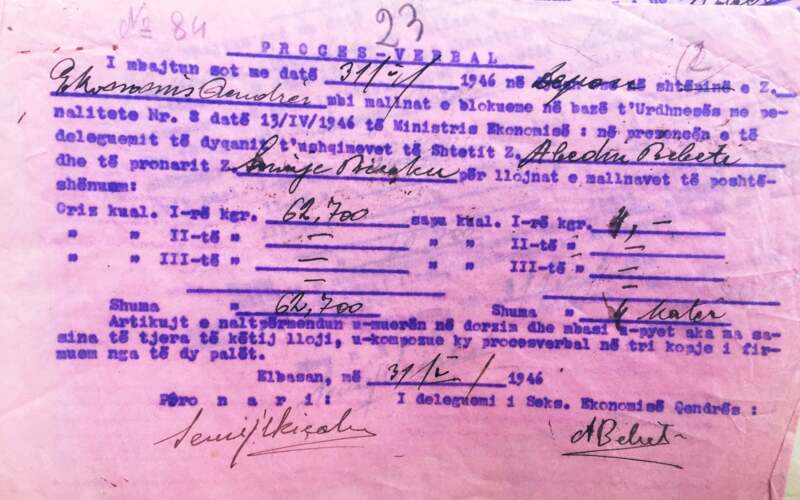 № 84
23
2
PROCES-VERBAL
I mbajtun sot me datë 31/V/ 1946 në shtëpinë e Z.
Ekonomis Qendrës mbi mallnat e blokueme në bazë t'Urdhnesës me pe-
nalitete Nr. 8 datë 13/IV/1946 të Ministris Ekonomisë : në prezencën e të
deleguemit të dyqanit t'ushqimevet të Shtetit Z. Abedin Bebeti
dhe të pronarit Z. për llojnat e mallnavet të poshtë-
shënum:
Oriz kual. I-rë kgr. 62,700 sapu kual. I-rë kgr. 4,—
" " II-të " — " " II-të " —
" " III-të " — " " III-të " —
— —
Shuma " 62,700 Shuma " 4 katër
Artikujt e naltpërmendun u-muerën në dorzim dhe mbasi u-pyet aka ma sa-
sina të tjera të këtij lloji, u-kompozue ky procesverbal në tri kopje i fir-
muem nga të dy palët.
Elbasan, më 31/V/ 1946
Përo n a r i : I deleguemi i Seks. Ekonomisë Qendrës :
ABebeti